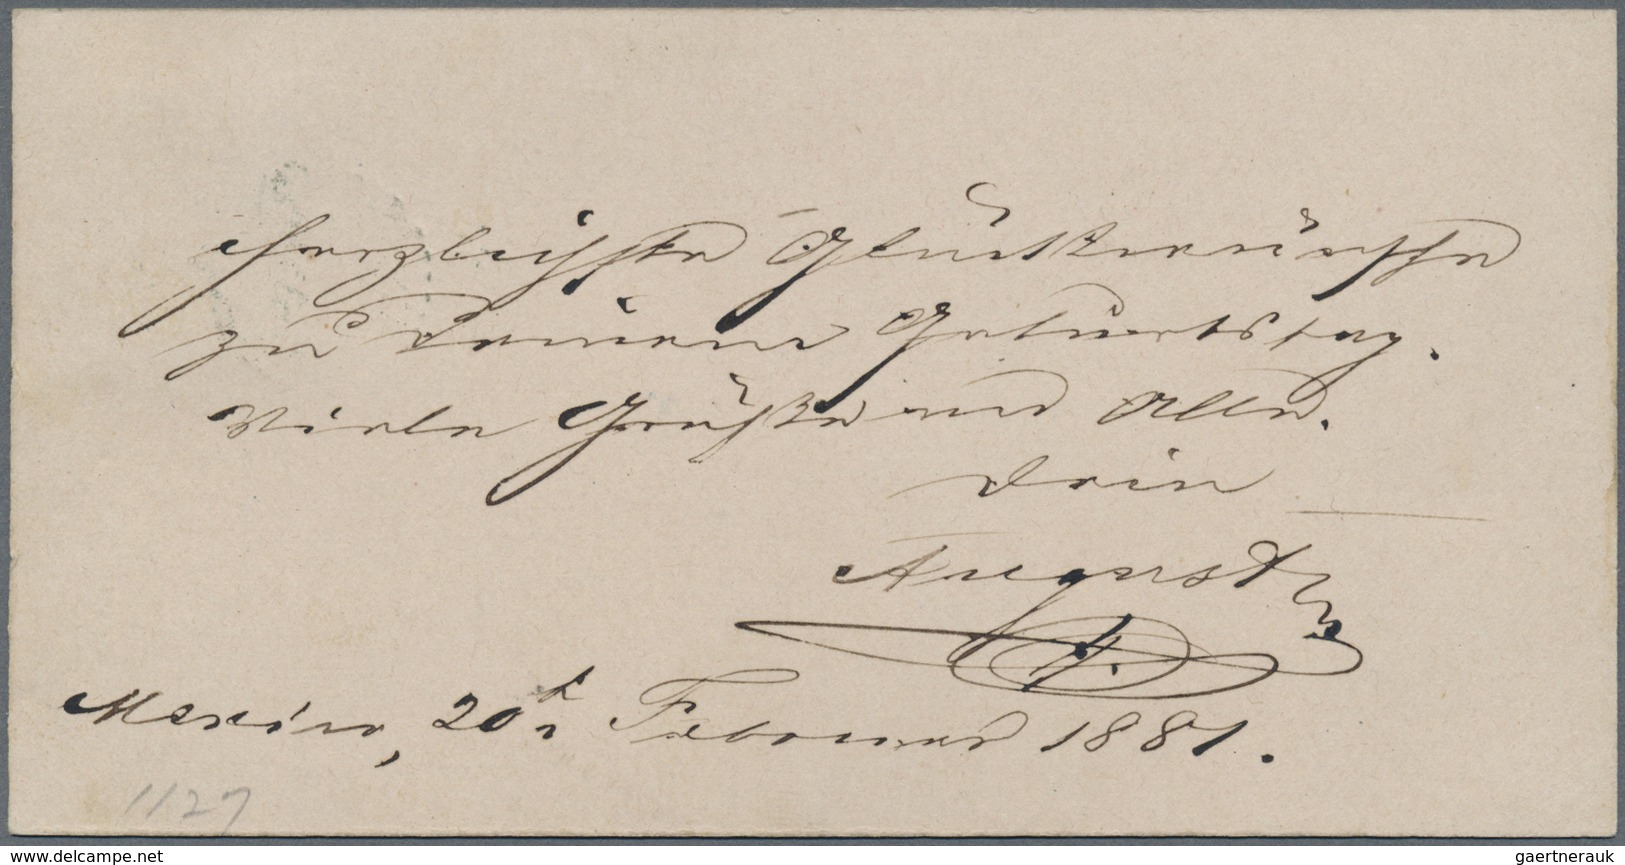 Herzlichste Glückwünsche
zu Deinem Geburtstag.
Viele Grüße an Alle.
Dein
August
Mexico, 20t Februar 1881.
1127
www.delcampe.net
gaertnerauk